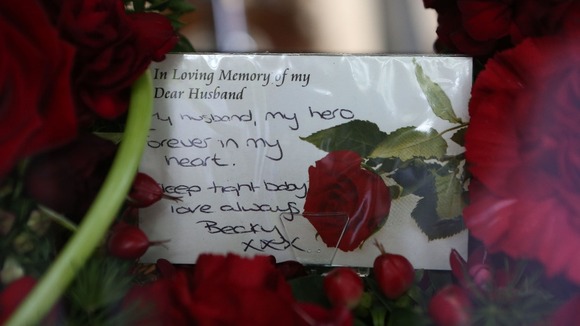 In Loving Memory of my
Dear Husband
husband, my hero
forever in my
heart.
sleep tight baby
love always
Becky
xxxx